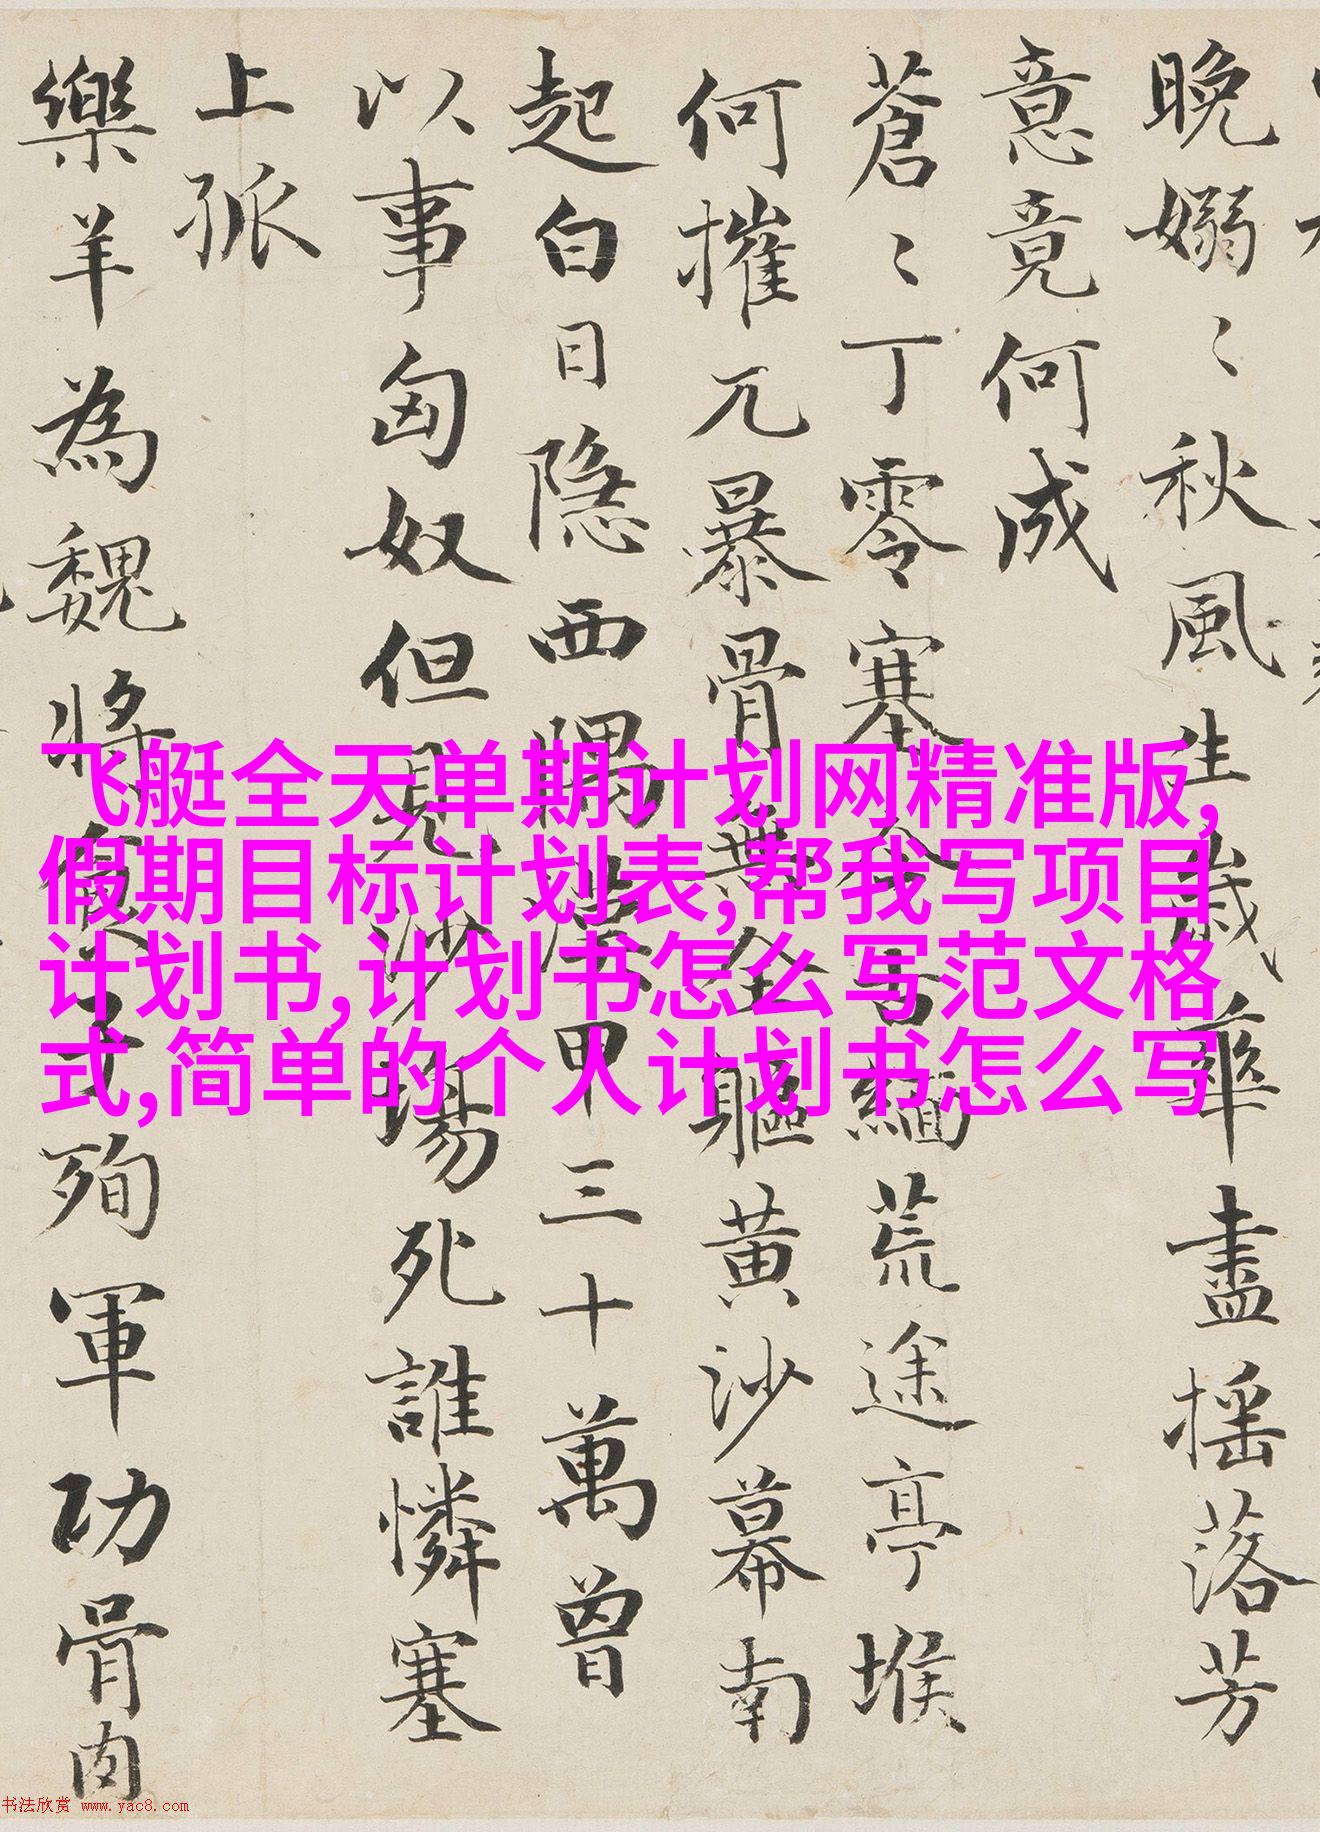 晚嫋〻秋風生歲華盡揺落芳
意竟何成
蒼〻丁零塞今古緬荒途亭堠
何摧兀暴骨無全軀黄沙幕南
起白日隱西隅漢甲三十萬曾
以事匈奴但見沙場死誰憐塞
上孤
樂羊為魏將食子殉軍功骨肉
飞艇全天单期计划网精准版,
假期目标计划表,帮我写项目
计划书,计划书怎么写范文格
式,简单的个人计划书怎么写
书法欣赏 www.yac8.com